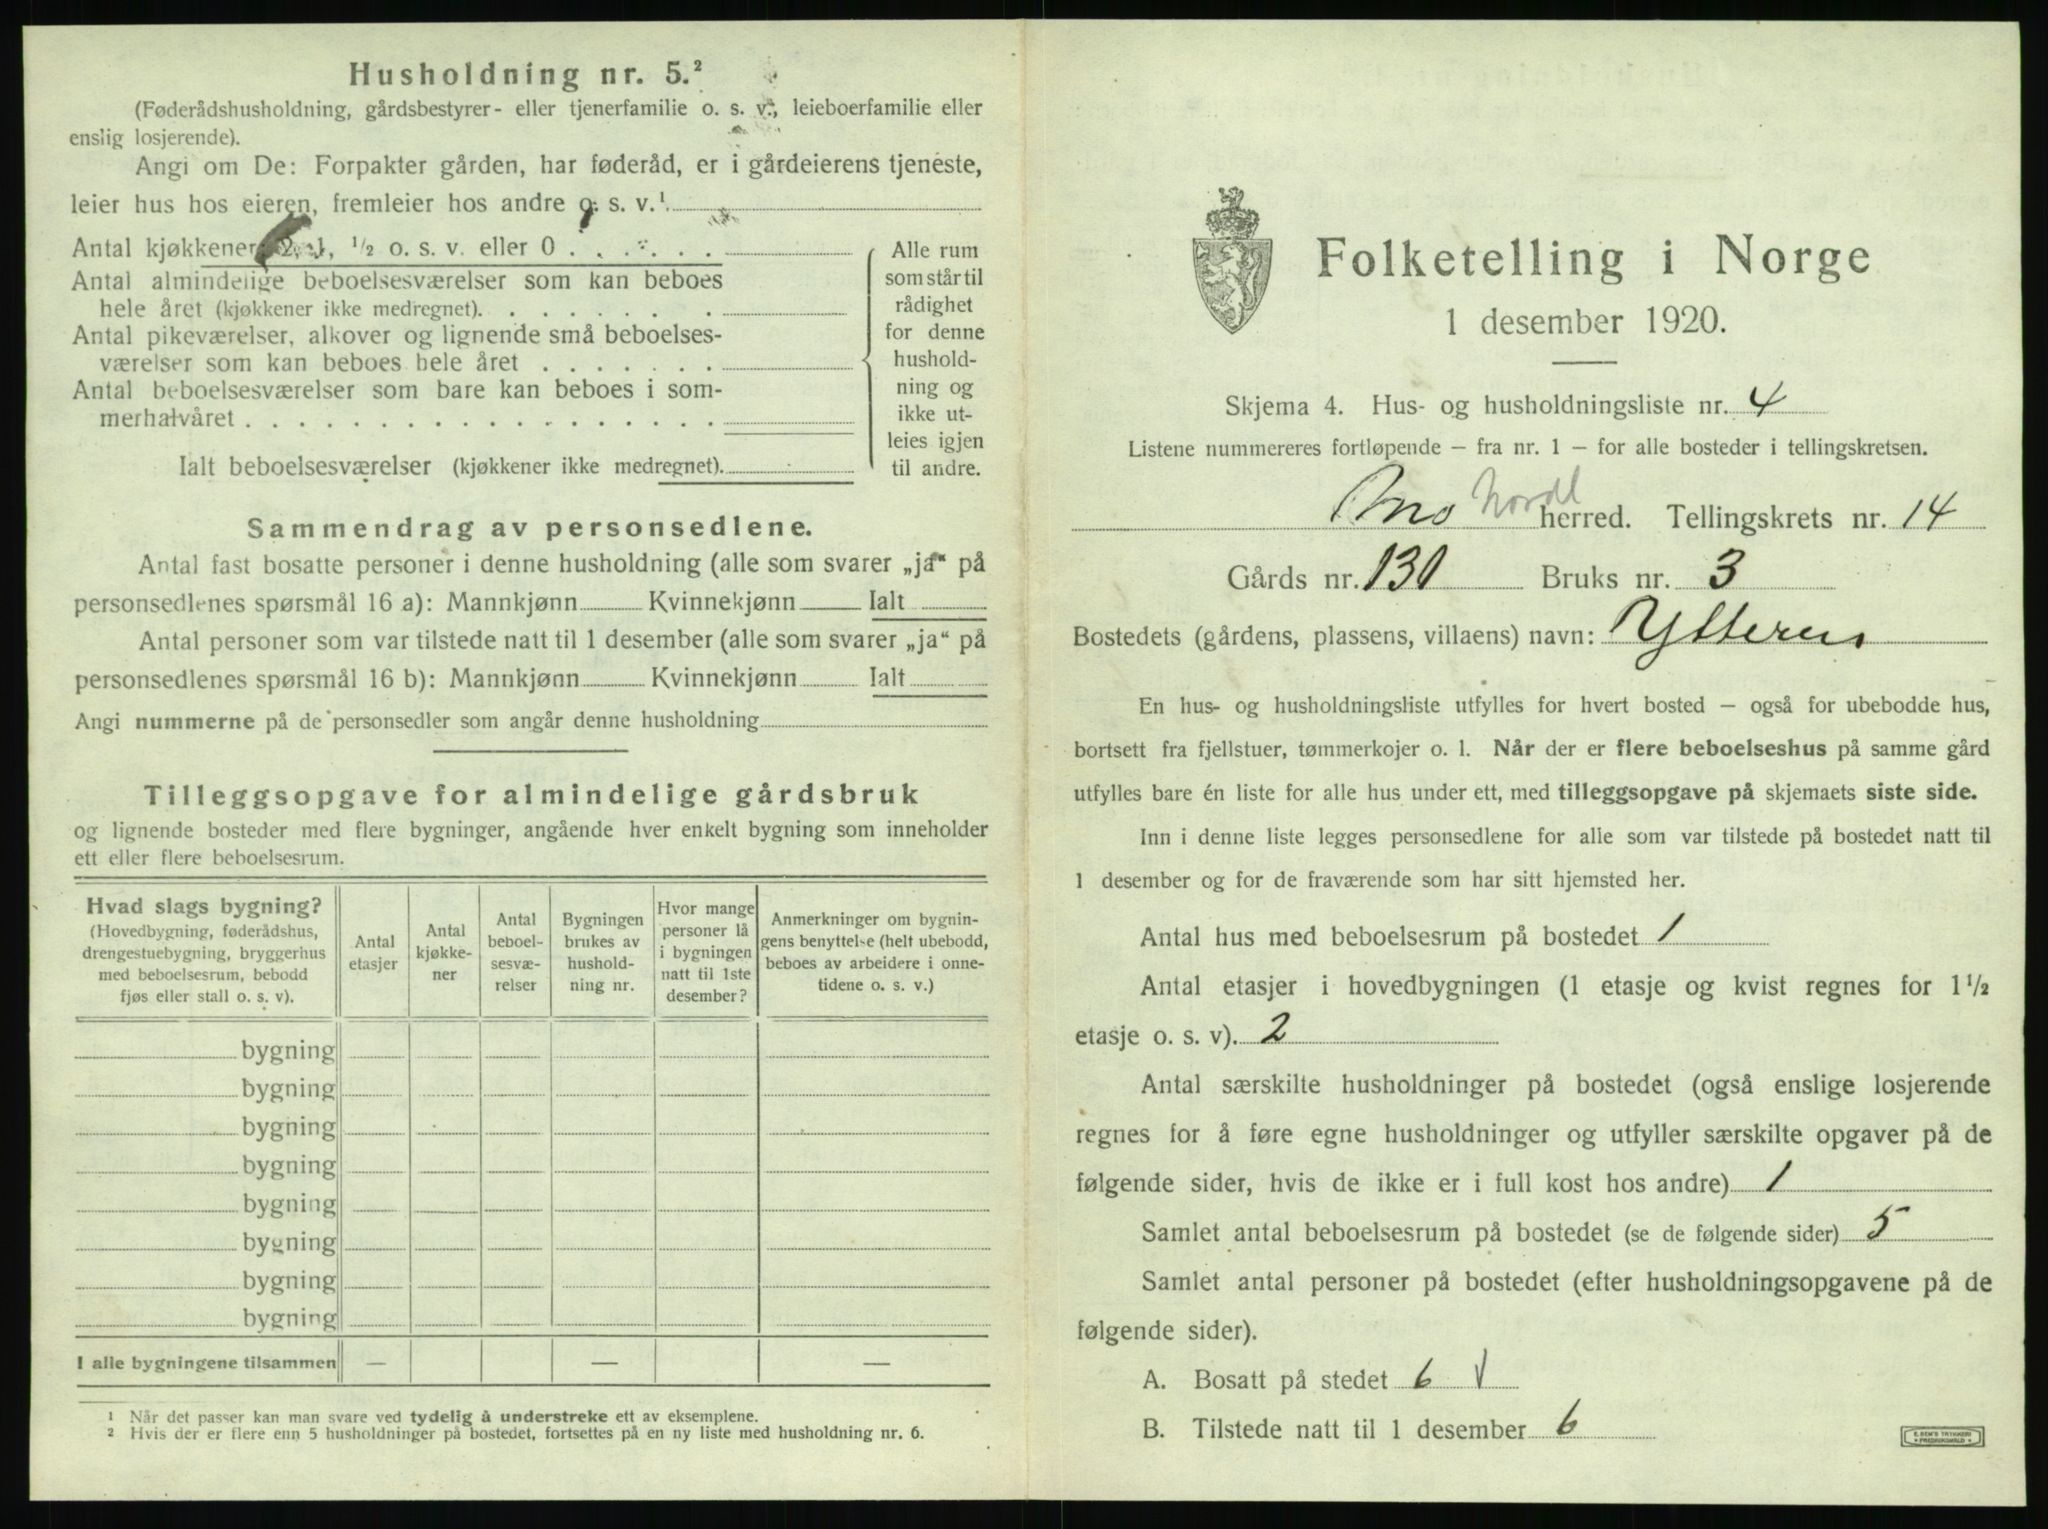 Husholdning nr. 5.²
(Føderådshusholdning, gårdsbestyrer- eller tjenerfamilie o. s. v., leieboerfamilie eller
enslig losjerende).
Angi om De: Forpakter gården, har føderåd, er i gårdeierens tjeneste,
leier hus hos eieren, fremleier hos andre o. s. v.¹
Antal kjøkkener 2, 1, ½ o. s. v. eller 0
Antal almindelige beboelsesværelser som kan beboes
hele året (kjøkkener ikke medregnet).
Antal pikeværelser, alkover og lignende små beboelses-
værelser som kan beboes hele året
Antal beboelsesværelser som bare kan beboes i som-
merhalvåret
Ialt beboelsesværelser (kjøkkener ikke medregnet).
Alle rum
som står til
rådighet
for denne
hushold-
ning og
ikke ut-
leies igjen
til andre.
Sammendrag av personsedlene.
Antal fast bosatte personer i denne husholdning (alle som svarer „ja“ på
personsedlenes spørsmål 16 a): Mannkjønn Kvinnekjønn Ialt
Antal personer som var tilstede natt til 1 desember (alle som svarer „ja“ på
personsedlenes spørsmål 16 b): Mannkjønn Kvinnekjønn Ialt
Angi nummerne på de personsedler som angår denne husholdning
Tilleggsopgave for almindelige gårdsbruk
og lignende bosteder med flere bygninger, angående hver enkelt bygning som inneholder
ett eller flere beboelsesrum.
Hvad slags bygning?
(Hovedbygning, føderådshus,
drengestuebygning, bryggerhus
med beboelsesrum, bebodd
fjøs eller stall o. s. v).
Antal
etasjer
Antal
kjøkke-
ner
Antal
beboel-
sesvæ-
relser
Bygningen
brukes av
hushold-
ning nr.
Hvor mange
personer lå
i bygningen
natt til 1ste
desember?
Anmerkninger om bygnin-
gens benyttelse (helt ubebodd,
beboes av arbeidere i onne-
tidene o. s. v.)
bygning
bygning
bygning
bygning
bygning
bygning
bygning
bygning
I alle bygningene tilsammen — — —
¹ Når det passer kan man svare ved tydelig å understreke ett av eksemplene.
² Hvis der er flere enn 5 husholdninger på bostedet, fortsettes på en ny liste med husholdning nr. 6.
Folketelling i Norge
1 desember 1920.
Skjema 4. Hus- og husholdningsliste nr. 4
Listene nummereres fortløpende – fra nr. 1 – for alle bosteder i tellingskretsen.
Mo Nordl herred. Tellingskrets nr. 14
Gårds nr. 131 Bruks nr. 3
Bostedets (gårdens, plassens, villaens) navn: Ytteren
En hus- og husholdningsliste utfylles for hvert bosted – også for ubebodde hus,
bortsett fra fjellstuer, tømmerkojer o. l. Når der er flere beboelseshus på samme gård
utfylles bare én liste for alle hus under ett, med tilleggsopgave på skjemaets siste side.
Inn i denne liste legges personsedlene for alle som var tilstede på bostedet natt til
1 desember og for de fraværende som har sitt hjemsted her.
Antal hus med beboelsesrum på bostedet 1
Antal etasjer i hovedbygningen (1 etasje og kvist regnes for 1½
etasje o. s. v). 2
Antal særskilte husholdninger på bostedet (også enslige losjerende
regnes for å føre egne husholdninger og utfyller særskilte opgaver på de
følgende sider, hvis de ikke er i full kost hos andre) 1
Samlet antal beboelsesrum på bostedet (se de følgende sider) 5
Samlet antal personer på bostedet (efter husholdningsopgavene på de
følgende sider).
A. Bosatt på stedet 6 V
B. Tilstede natt til 1 desember 6
E. SEM'S TRYKKERI
• FREDRIKSHALD •